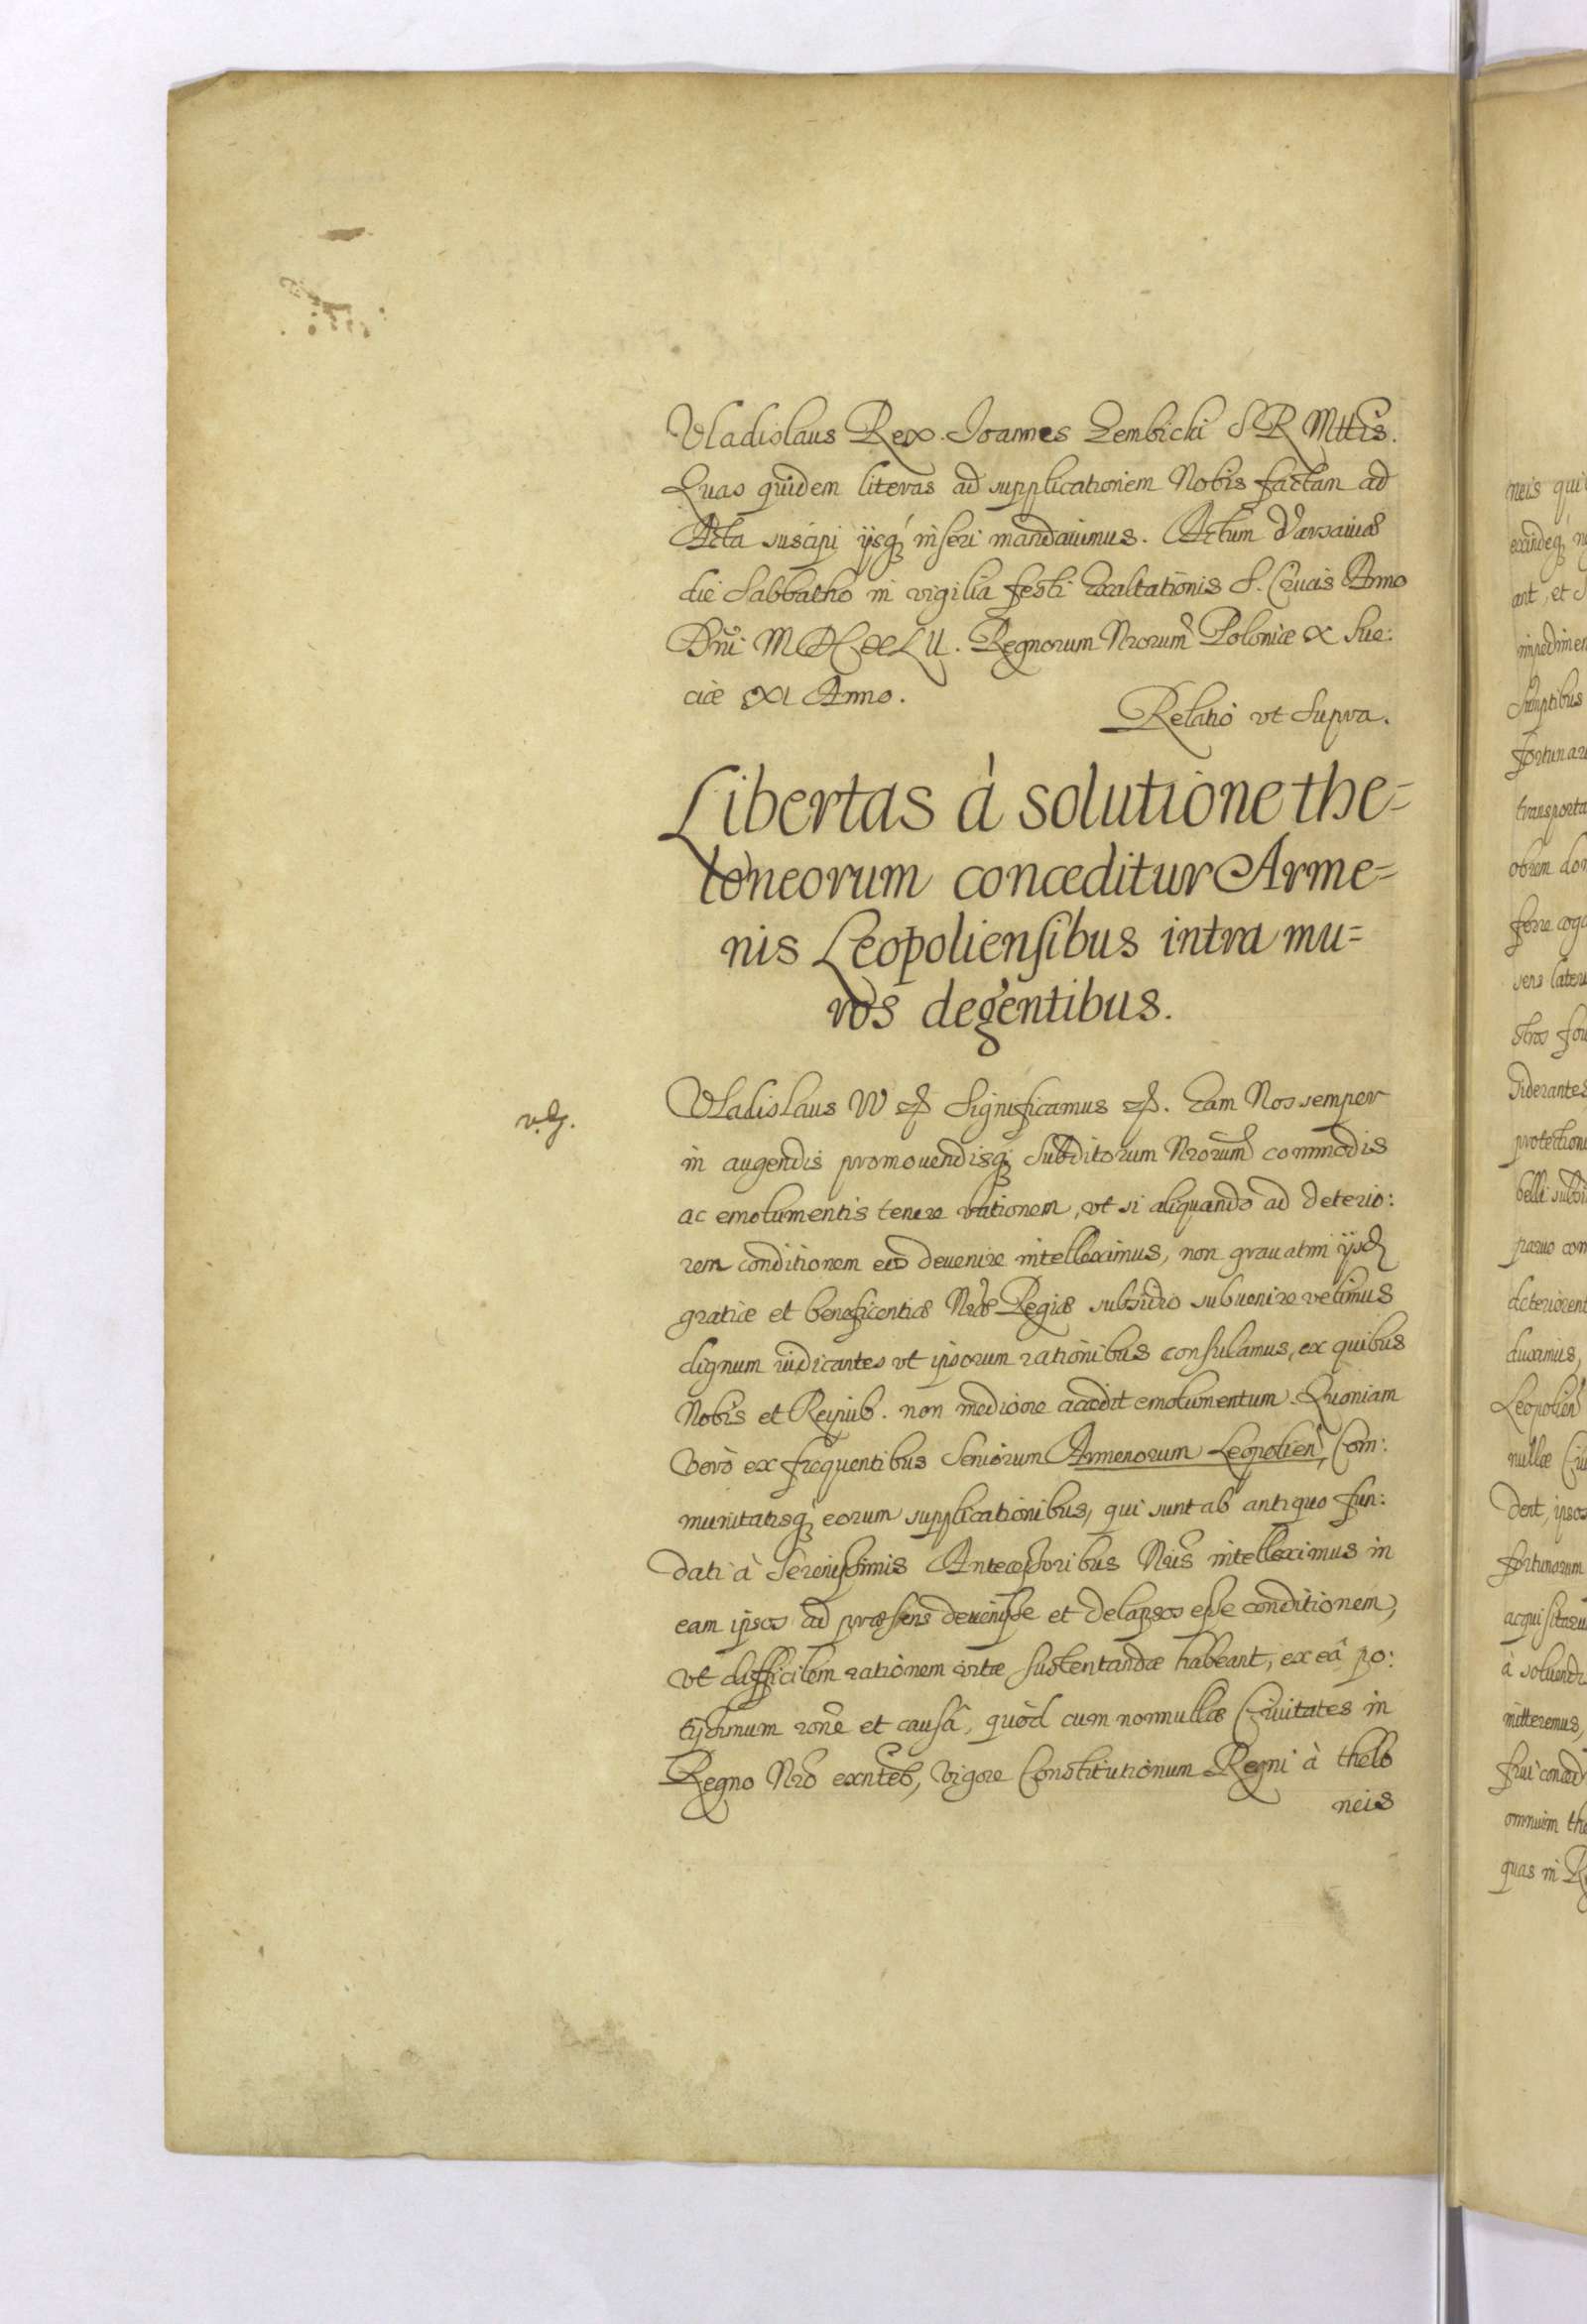 Vladislaus Rex. Joannes Zembicki S R Mttis.
Quas quidem literas ad supplicationem Nobis factam ad
Acta suscipi ijsq́ inseri mandauimus. Actum Varsauiæ
die Sabbatho in vigilia festi exaltationis S. Crucis Anno
Dni M DC XLII. Regnorum Nrorum Poloniæ X Sue:
ciæ XI Anno.
Relatio vt Supra.
Libertas à solutione the=
loneorum conceditur Arme=
nis Leopoliensibus intra mu=
ros degentibus.
Vladislaus IV Significamus Eam Nos semper
in augendis promouendisq́ Subditorum Nrorum commodis
ac emolumentis tenere rationem, vt si aliquando ad deterio:
rem conditionem eos deuenire intelleximus, non grauatim ijsd
gratiæ et beneficentiæ Nræ Regiæ subsidio subuenire velimus
dignum iudicantes vt ipsorum rationibus consulamus, ex quibus
Nobis et Reipub. non mediocre accedit emolumentum. Quoniam
Verò ex frequentibus Seniorum Armenorum Leopolien, Com:
munitatisq́ eorum supplicationibus, qui sunt ab antiquo fun:
dati à Serenissimis Antecessoribus Nris intelleximus in
eam ipsos ad præsens deuenisse et delapsos esse conditionem,
vt difficilem rationem vitæ sustentandæ habeant, ex eâ po:
tissimum rone et causâ, quòd cum nonnullæ Ciuitates in
Regno Nro exntes, vigore Constitutionum Regni à thelo
neis
neis
ant, et
Sumptibus
transporta
protection
duximus,
Leopolien
nullæ
dent, ipsos
à soluendi
mitteremus,
omnium
quas in